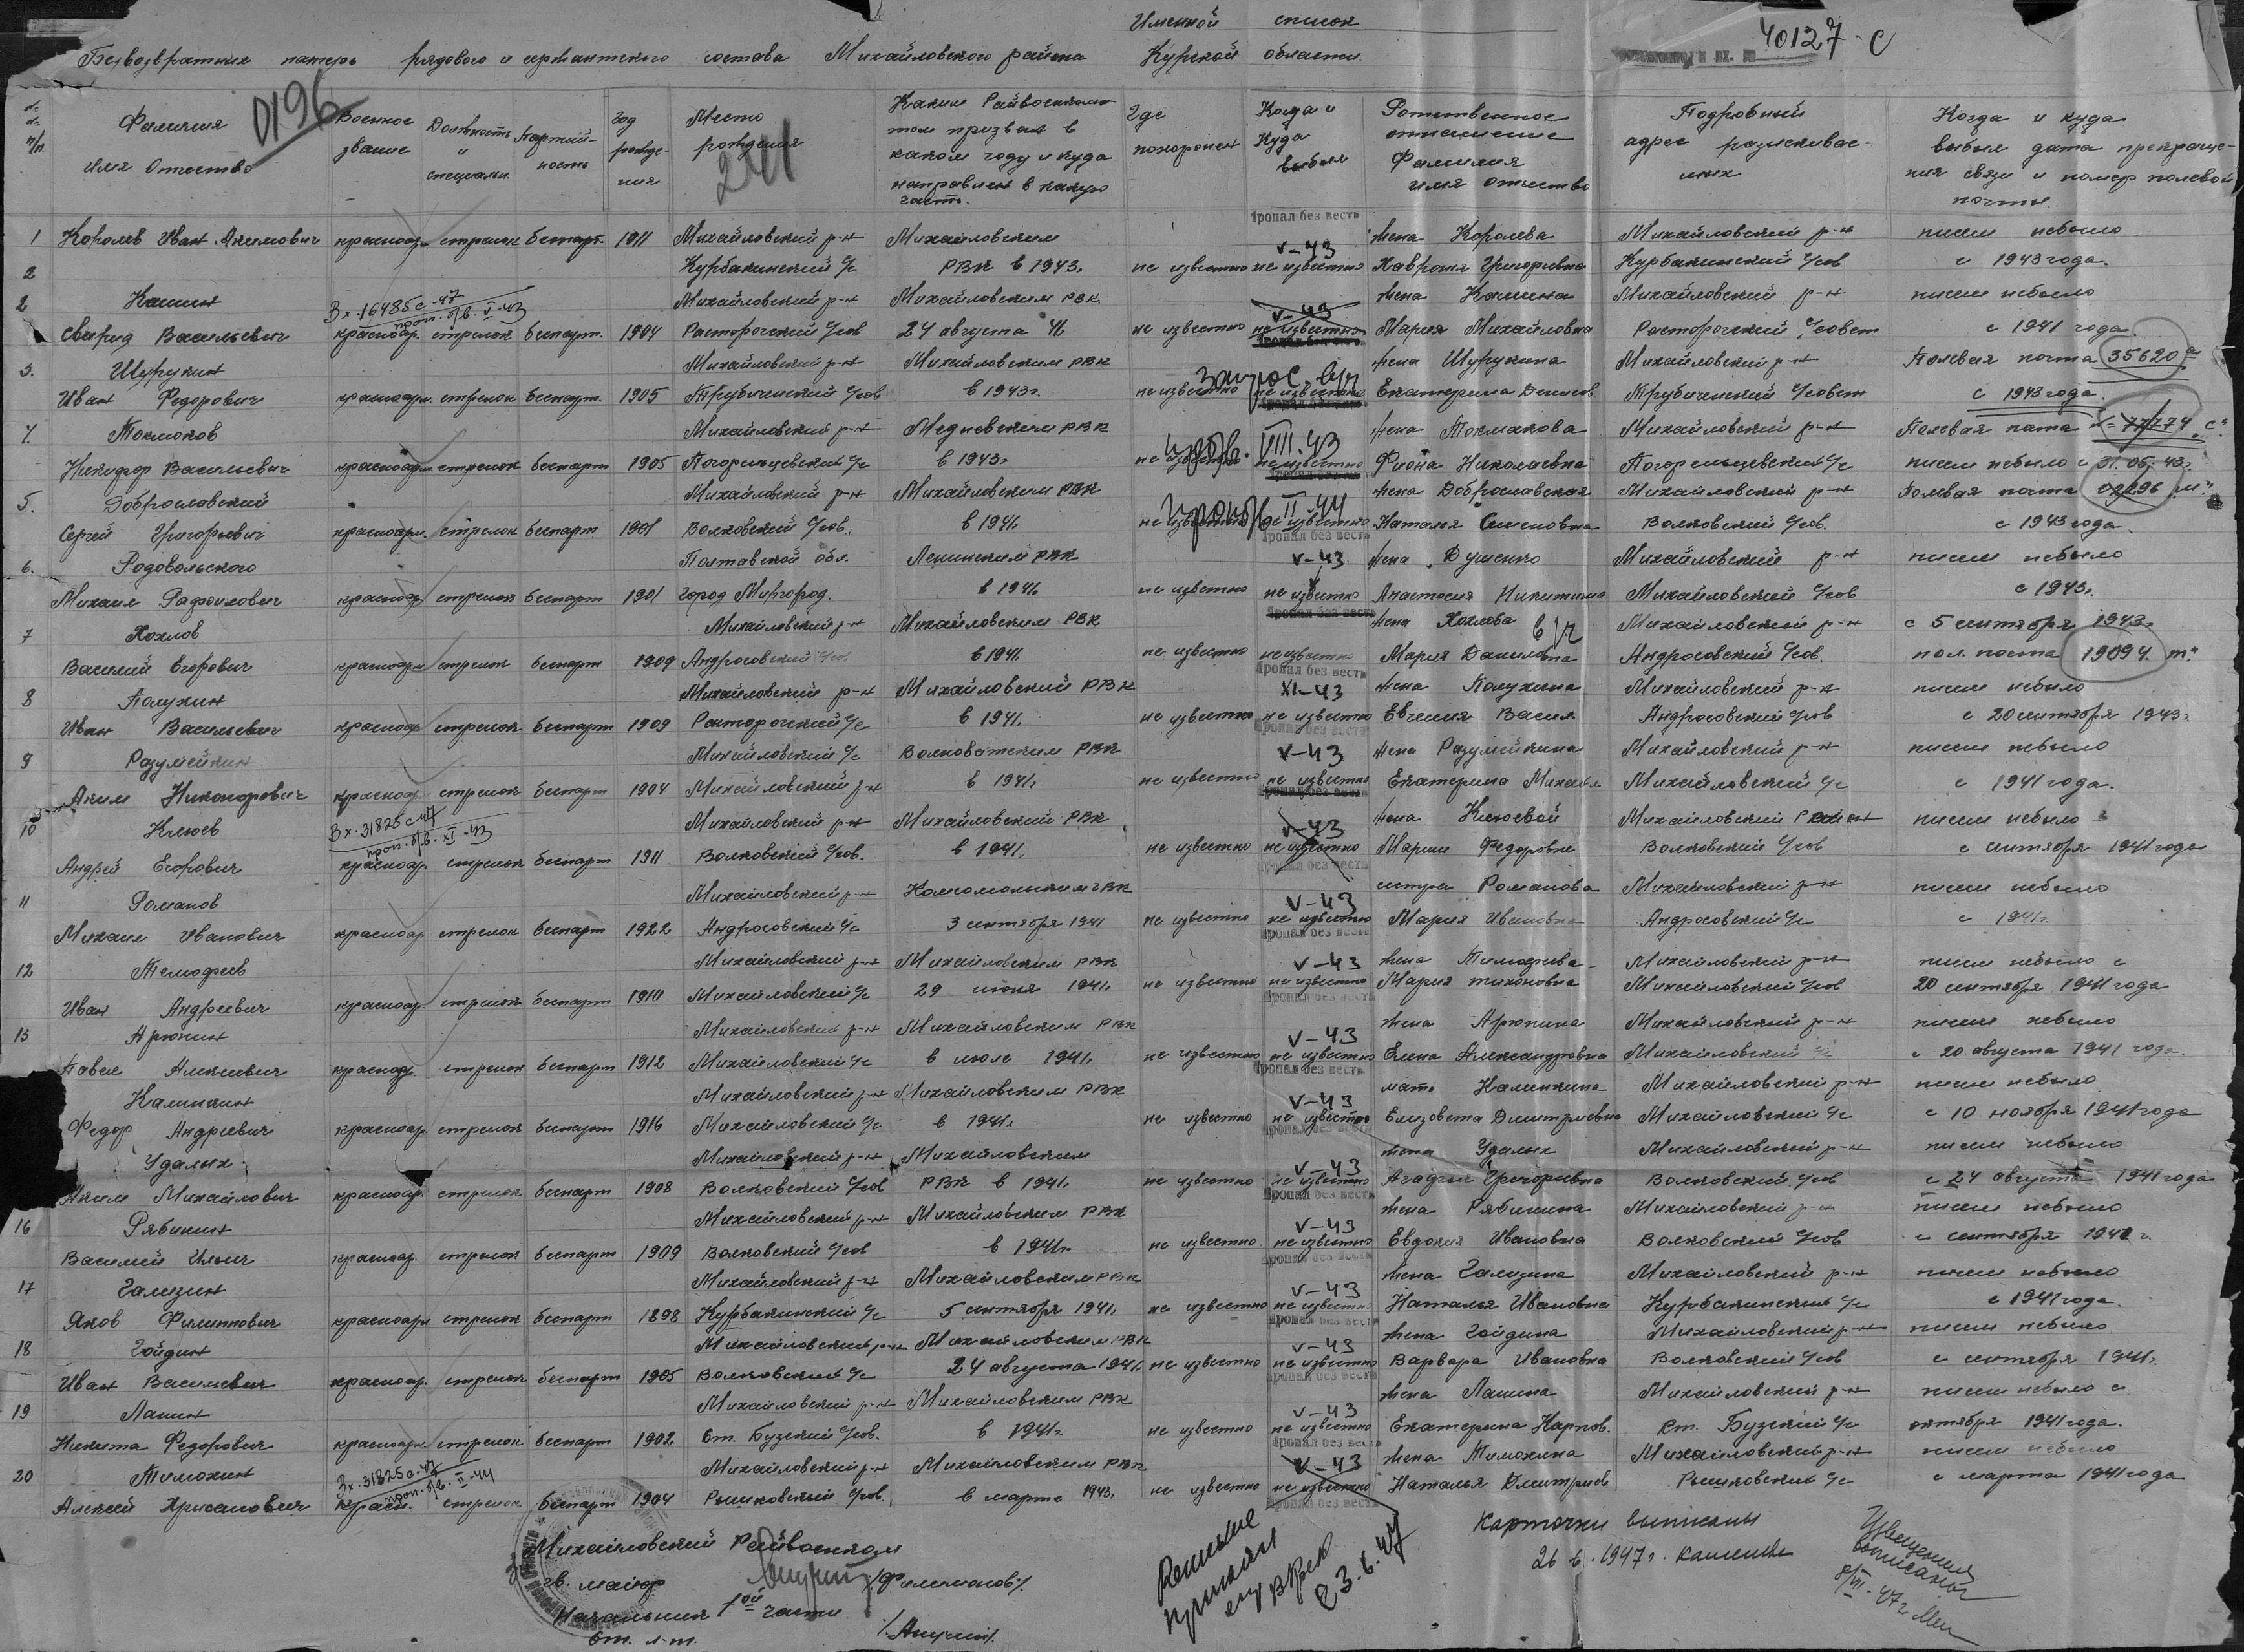 Именной список
40127-с
Безвозвратных потерь рядового и сержантского состава Михайловского района Курской области.
0196
241
№№ п/п
Фамилия имя Отчество
Военное звание
Должность и специальн.
Партийность
Год рождения
Место рождения
Каким Райвоенкоматом призван в каком году и куда направлен в какую часть.
Где похоронен
Когда и Куда выбыл
Родственное отношение Фамилия имя отчество
Подробный адрес разыскиваемых
Когда и куда выбыл дата прекращения связи и номер полевой почты.
Пропал без вести
1 Королев Иван Акимович красноар. стрелок беспарт. 1911 Михайловский р-н Михайловским V-43 жена Королева Михайловский р-н писем небыло
2 Курбакинский с/с РВК в 1943г. не известно не известно Хавронья Григорьевна Курбакинский с/сов с 1943 года.
2 Кашин Вх-16485с-47 Михайловский р-н Михайловским РВК V-43 жена Кашина Михайловский р-н писем небыло
проп. б/в. V-43
Свирид Васильевич красноар. стрелок беспарт. 1904 Расторогский с/сов 24 августа 41 не известно не известно Мария Михайловна Расторогский с/совет с 1941 года.
3. Шурукин Михайловский р-н Михайловским РВК жена Шурукина Михайловский р-н Полевая почта 35620
запрос в/ч
Иван Федорович красноарм. стрелок беспарт. 1905 Трубичинский с/сов в 1943г. не известно не известно Екатерина Денисов. Трубичинский с/совет с 1943 года.
4. Токмаков Михайловский р-н Медневским РВК жена Токмакова Михайловский р-н Полевая почта 77774 "с"
проп. VIII.43
Никифор Васильевич красноарм. стрелок беспарт 1905 Погорельцевский с/с в 1943г не известно не известно Фиона Николаевна Погорельцевский с/с писем небыло с 31.05.43г.
5. Доброславский Михайловский р-н Михайловским РВК жена Доброславская Михайловский р-н Полевая почта 02296 "м"
проп. б/в II-44
Сергей Григорьевич красноарм. стрелок беспарт 1901 Волковский с/сов. в 1941г. не известно не известно Наталья Семеновна Волковский с/сов. с 1943 года.
Пропал без вести
6. Родовольского Полтавской обл. Ленинским РВК V-43 жена Душенко Михайловский р-н писем небыло
Михаил Рафаилович красноар стрелок беспарт 1901 город Миргород. в 1941г. не известно не известно Анастасия Никитична Михайловский с/сов с 1943г.
7 Хохлов Михайловский р-н Михайловским РВК жена Хохлова в/ч Михайловский р-н с 5 сентября 1943г.
Василий Егорович красноарм стрелок беспарт 1909 Андросовский с/сов. в 1941г. не известно неизвестно Мария Даниловна Андросовский с/сов. пол. почта 19094 "т"
Пропал без вести
8 Полухин Михайловский р-н Михайловский РВК XI-43 жена Полухина Михайловский р-н писем небыло
Иван Васильевич красноар стрелок беспарт 1909 Расторогский с/с в 1941г. не известно не известно Евгения Васил Андросовский с/сов с 20 сентября 1943г
Пропал без вести
9 Разумейкин Михайловский с/с Волноватским РВК V-43 жена Разумейкина Михайловский р-н писем небыло
Аким Никонорович красноар стрелок беспарт 1904 Михайловский р-н в 1941г. не известно не известно Екатерина Михайл. Михайловский с/с с 1941 года.
10 Клюев Вх-31825с-47 Михайловский р-н Михайловский РВК V-43 жена Клюевой Михайловский район писем небыло
проп. б/в. XI-43
Андрей Егорович красноар. стрелок беспарт 1911 Волковский с/сов. в 1941г. не известно не известно Марии Федоровне Волковский с/сов с сентября 1941 года
Пропал без вести
11 Романов Михайловский р-н V-43 сестра Романова Михайловский р-н писем небыло
Михаил Иванович красноар стрелок беспарт 1922 Андросовский с/с 3 сентября 1941 не известно не известно Мария Ивановна Андросовский с/с с 1941г.
Пропал без вести
12 Темофеев Михайловский р-н Михайловским РВК V-43 жена Тимофеева Михайловский р-н писем небыло с
Иван Андреевич красноар. стрелок беспарт 1910 Михайловский с/с 29 июня 1941г. не известно не известно Мария тихоновна Михайловский с/сов 20 сентября 1941 года
Пропал без вести
13 Арюпин Михайловский р-н Михайловским РВК V-43 жена Арюпина Михайловский р-н писем небыло
Павел Алексеевич красноар. стрелок беспарт 1912 Михайловский с/с в июле 1941г. не известно не известно Елена Александровна Михайловский с/с с 20 августа 1941 года.
Пропал без вести
Калинкин Михайловский р-н Михайловским РВК V-43 мать Калинкина Михайловский р-н писем небыло
Федор Андреевич красноар. стрелок беспарт 1916 Михайловский с/с в 1941г. не известно не известно Елизовета Дмитриевна Михайловский с/с с 10 ноября 1941 года
Пропал без вести
Удалых Михайловский р-н Михайловским V-43 жена Удалых Михайловский р-н писем небыло
Аким Михайлович красноар. стрелок беспарт 1908 Волковский с/сов РВК в 1941г. не известно не известно Агафья Григорьевна Волковский с/сов с 24 августа 1941 года
Пропал без вести
16 Рябикин Михайловский р-н Михайловским РВК V-43 жена Рябинина Михайловский р-н писем небыло
Василий Ильич красноар. стрелок беспарт 1909 Волковский с/сов в 1941г. не известно не известно Евдокия Ивановна Волковский с/сов с сентября 1941г.
Пропал без вести
17 Гализин Михайловский р-н Михайловским РВК V-43 жена Гализина Михайловский р-н писем небыло
Яков Филиппович красноарм стрелок беспарт 1898 Курбакинский с/с 5 сентября 1941г. не известно не известно Наталья Ивановна Курбакинский с/с с 1941 года.
Пропал без вести
18 Гойдин Михайловский р-н Михайловским РВК V-43 жена Гойдина Михайловский р-н писем небыло
Иван Васильевич красноар. стрелок беспарт 1905 Волковский с/с 24 августа 1941г. не известно не известно Варвара Ивановна Волковский с/сов с сентября 1941г.
Пропал без вести
19 Лапин Михайловский р-н Михайловским РВК V-43 жена Лапина Михайловский р-н писем небыло с
Никита Федорович красноарм стрелок беспарт 1902 Ст. Бузский с/сов. в 1941г. не известно не известно Екатерина Карпов. Ст. Бузский с/с октября 1941 года.
Пропал без вести
20 Тимохин Вх-31825с-47 Михайловский р-н Михайловским РВК V-43 жена Тимохина Михайловский р-н писем небыло
проп. б/в. II-44
Алексей Хрисанович красн. стрелок беспарт 1904 Рышковский с/сов. в марте 1943г. не известно не известно Наталья Дмитриев Рышковский с/с с марта 1941 года
Пропал без вести
Михайловский Райвоенком
гв. майор /Филимонов/.
Начальник 1ой части
ст. л-т.
23.6.47
Карточки выписаны
26.6.1947г.
Извещения выписаны
8/VII-47г